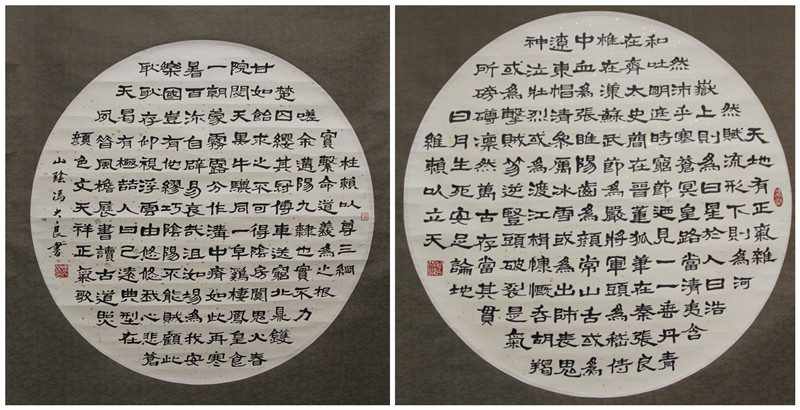 天地有正氣雜
然賦流形下則為河
嶽上則為日星於人曰浩
然沛乎塞蒼冥皇路當清夷含
和吐明庭時窮節迺見一一垂丹青
在齊太史簡在晉董狐筆在秦張良
椎在漢蘇武節為嚴將軍頭為嵇侍
中血為張睢陽齒為顏常山舌或為
遼東帽清操厲冰雪或為出師表鬼
神泣壯烈或為渡江楫慷慨吞胡羯
或為擊賊笏逆豎頭破裂是氣
所磅礴凜然萬古存當其貫
日月生死安足論地
維賴以立天
柱賴以尊三綱
實繫命道義為之根
嗟余遘陽九隸也實不力
楚囚纓其冠傳車送窮北鼎鑊
甘如飴求之不可得陰房闃鬼火春
院閟天黑牛驥同一皁鷄棲鳳凰食
一朝蒙霧露分作溝中瘠如此再寒
暑百沴自辟易哀哉沮洳場為我安
樂國豈有他繆巧陰陽不能賊顧此
耿耿存仰視浮雲白悠悠我心悲蒼
天曷有極哲人日已遠典型在
夙昔風檐展書讀古道照
顏色文天祥正氣歌
山陰馮大良書